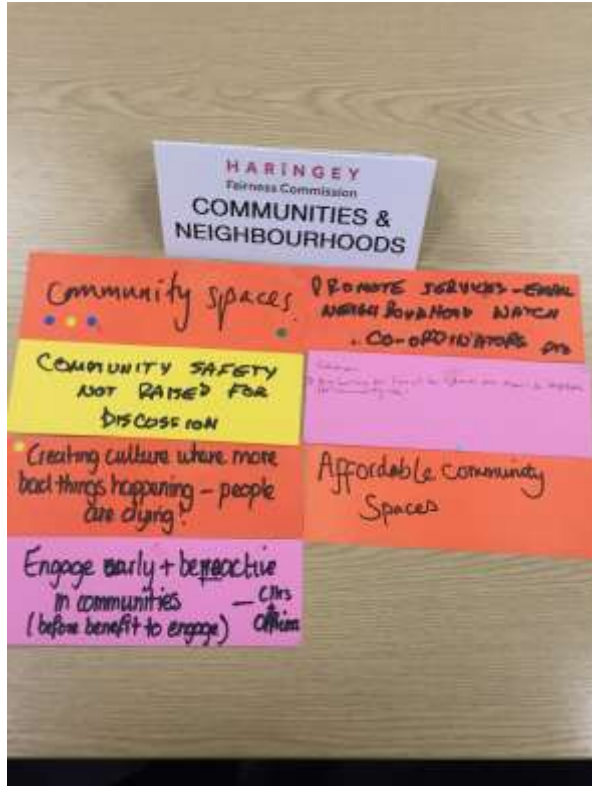 HARINGEY
Fairness Commission
COMMUNITIES &
NEIGHBOURHOODS
Community spaces.
PROMOTE SERVICES - EMAIL
NEIGHBOURHOOD WATCH
. CO-ORDINATORS
COMMUNITY SAFETY
NOT RAISED FOR
DISCUSSION
Creating culture where more
bad things happening - people
are dying!
Affordable Community
Spaces
Engage early + be proactive
in communities
(before benefit to engage)
- Cllrs
&
Officers